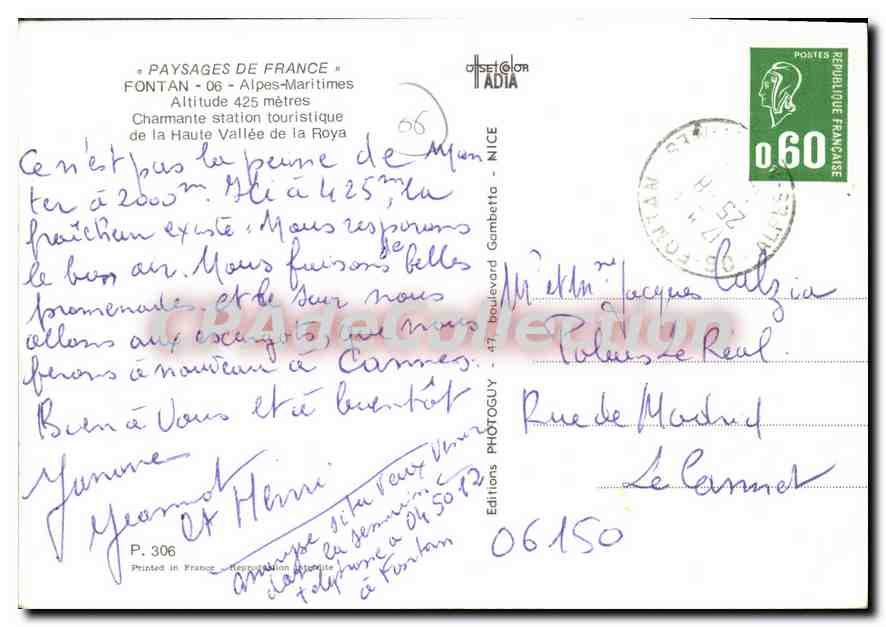 « PAYSAGES DE FRANCE »
FONTAN - 06 - Alpes-Maritimes
Altitude 425 mètres
Charmante station touristique
de la Haute Vallée de la Roya
06
Ce n'est pas la peine de mon
ter à 2000m. Ici à 425m, la
fraîcheur existe. Nous respirons
le bon air. Nous faisons de belles
promenades, et le soir nous
allons aux escargots, que nous
ferons à nouveau à Cannes.
Bien à Vous et à bientôt
Janine
Jeannot
et Henri
si tu veux venir
dans la semaine
téléphone a 04 50 82
à Fontan
P. 306
Printed in France - Reproduction interdite
OffsetColor
ADIA
Editions PHOTOGUY - 47, boulevard Gambetta - NICE
POSTES
REPUBLIQUE FRANÇAISE
0,60
FONTAN
17 H
25 - 8
06 ALPES-MARITIMES
Mr et Mme Jacques Calzia
Palais Le Réal
Rue de Madrid
Le Cannet
06150
CPAdeCollection